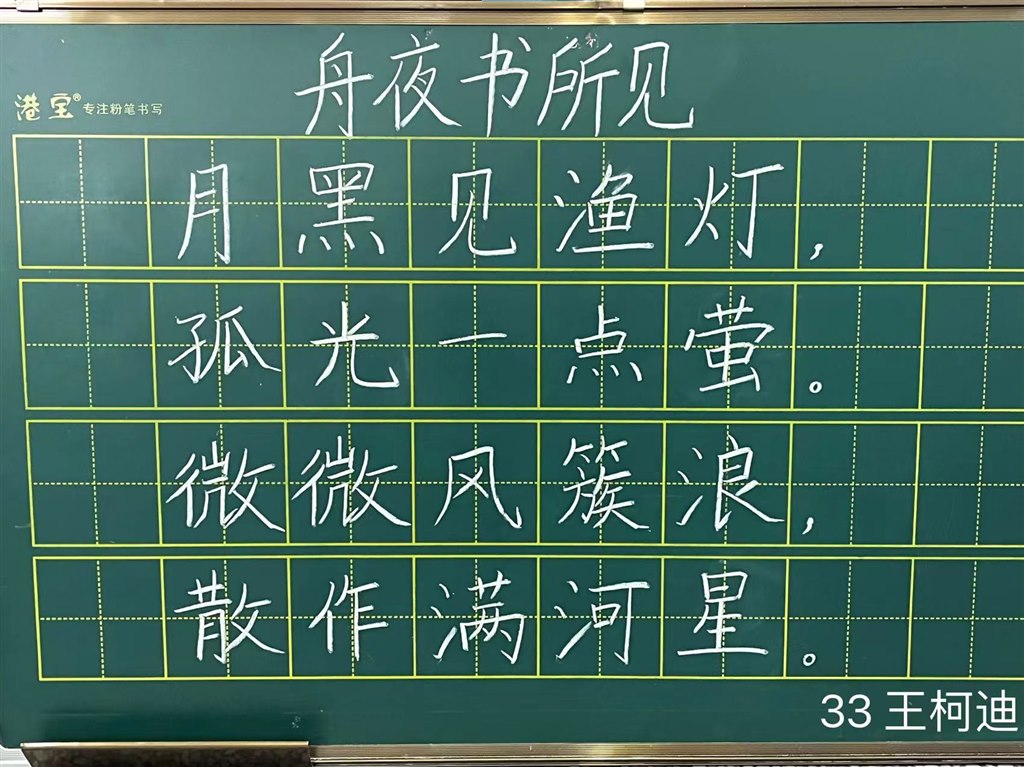 舟夜书所见
港宝® 专注粉笔书写
月黑见渔灯，
孤光一点萤。
微微风簇浪，
散作满河星。
33 王柯迪